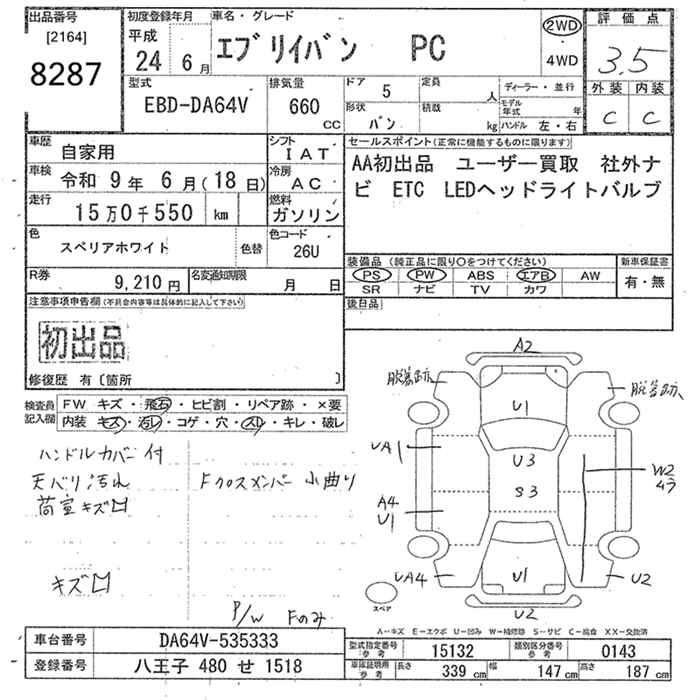 出品番号
[2164]
8287
初度登録年月
平成
24年 6月
車名・グレード
エブリイバン PC
2WD
4WD
評価点
3.5
外装 内装
C C
型式
EBD-DA64V
排気量
660 CC
ドア 5
形状 バン
定員 人
積載 kg
ディーラー・並行
モデル年式 年
ハンドル 左・右
車歴
自家用
シフト
IAT
車検
令和 9年 6月(18日)
冷房
AC
走行
15万0千550 km
燃料
ガソリン
色
スペリアホワイト
色替
色コード
26U
R券
9,210円
名変通知期限
月 日
セールスポイント(正常に機能するものに限ります)
AA初出品 ユーザー買取 社外ナ
ビ ETC LEDヘッドライトバルブ
装備品 (純正品に限り〇をつけてください)
PS PW ABS エアB AW
SR ナビ TV カワ
新車保証書
有・無
後日品
注意事項申告欄(不具合内容等は具体的に記入して下さい)
初出品
修復歴 有〔箇所 〕
検査員
記入欄
FW キズ・飛石・ヒビ割・リペア跡・×要
内装 キズ・汚レ・コゲ・穴・スレ・キレ・破レ
ハンドルカバー付
天バリ汚れ
荷室キズ凹
Fクロスメンバー小曲り
キズ凹
P/W Fのみ
A2
脱着跡
脱着跡
U1
UA1
U3
S3
W2
ムラ
A4
U1
UA4
U1
U2
U2
スペア
A-キズ E-エクボ U-凹み W-補修跡 S-サビ C-腐食 XX-交換済
車台番号
DA64V-535333
登録番号
八王子 480 せ 1518
型式指定番号
参考
15132
類別区分番号
参考
0143
車庫証明用
参考
長さ 339 cm 幅 147 cm 高さ 187 cm